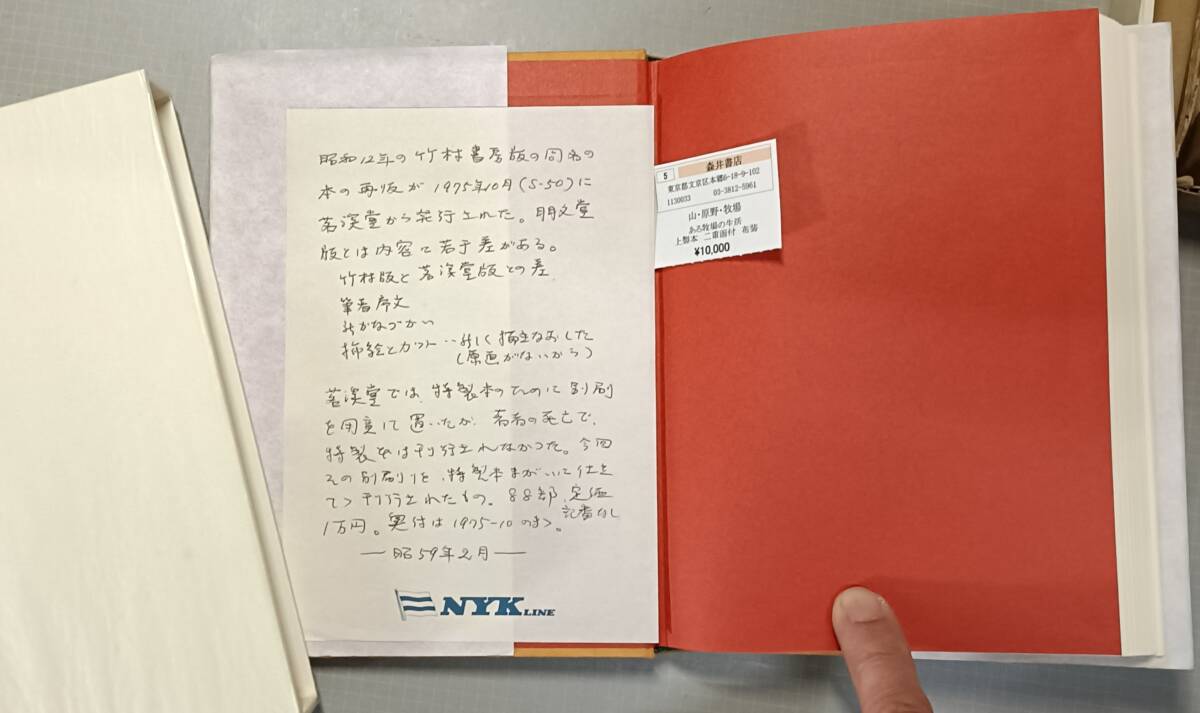 昭和12年の竹村書房版の同名の
本の再版が1975年10月(S-50)に
茗渓堂から発行された。朋文堂
版とは内容に若干差がある。
竹村版と茗渓堂版との差
筆者序文
新かなづかい
挿絵とカット‥新しく描きなおした
(原画がないから)
茗渓堂では、特製本のために別刷
を用意して置いたが、著者の死亡で、
特製本は刊行されなかった。今回
その別刷りを、特製本まがいに仕立
てゝ刊行されたもの。88部、定価
記番なし
1万円。奥付は1975-10のまゝ。
—昭59年2月—
NYK LINE
5
森井書店
東京都文京区本郷6-18-9-102
1130033 03-3812-5961
山・原野・牧場
ある牧場の生活
上製本 二重函付 布装
¥10,000